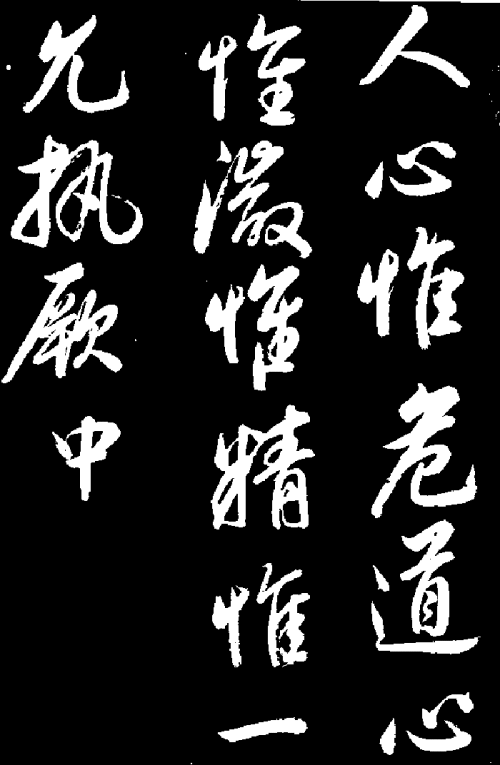 人心惟危道心
惟微惟精惟一
允执厥中